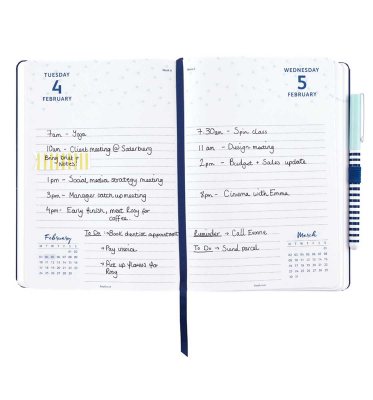 TUESDAY
4
FEBRUARY
7am - Yoga
10am - Client meeting @ Soderburg
Bring brief +
Notes!
1pm - Social media strategy meeting
3pm - Manager catch up meeting
4pm - Early finish, meet Rosy for
coffee.
February
To Do → Book dentist appointment
→ Pay invoice
→ Pick up flowers for
Rosy
WEDNESDAY
5
FEBRUARY
7.30am - Spin class
11am - Design meeting
2pm - Budget + Sales update
8pm - Cinema with Emma
Reminder → Call Emma
To Do → Send parcel
March